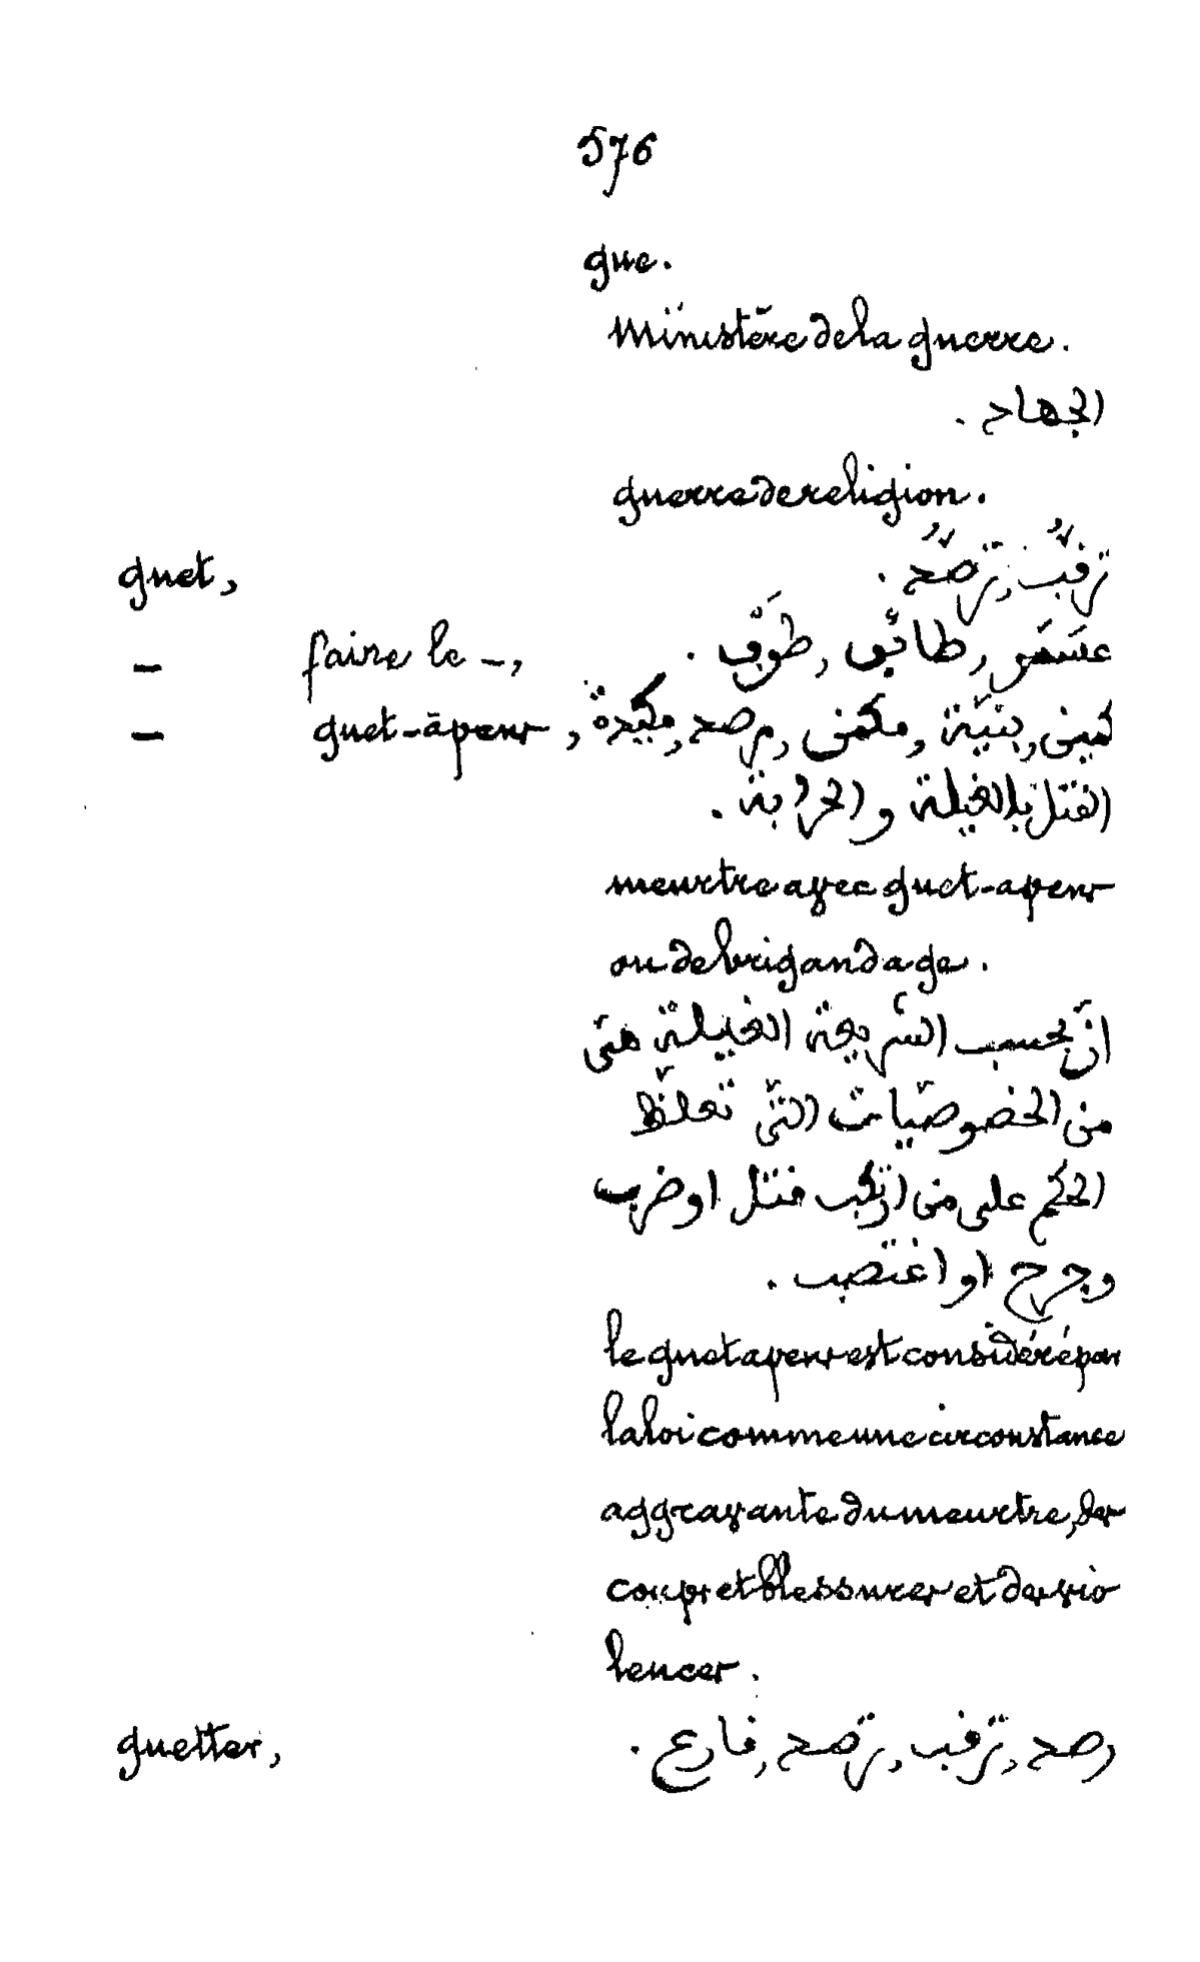 576
gue.
Ministère de la guerre.
الجهاد .
guerre de religion.
guet, ترقُّب, ترصُّد .
— faire le —, عسَسَ, طائف, طوَّف .
— guet-àpens, كمين, بنيّة, مكمن, مرصد, مكيدة
القتل بالغيلة و الحرابة .
meurtre avec guet-apens
ou de brigandage.
انّ بحسب الشّريعة الغيلة هىَ
من الخصوصيّات التّى تغلّظ
الحكم على من ارتكب قتل او ضرب
وجرح او اغتصب .
le guet apens est considéré par
la loi comme une circonstance
aggravante du meurtre, des
coups et blessures et des vio
lences.
guetter, رصد, ترقب, ترصد, فارع .